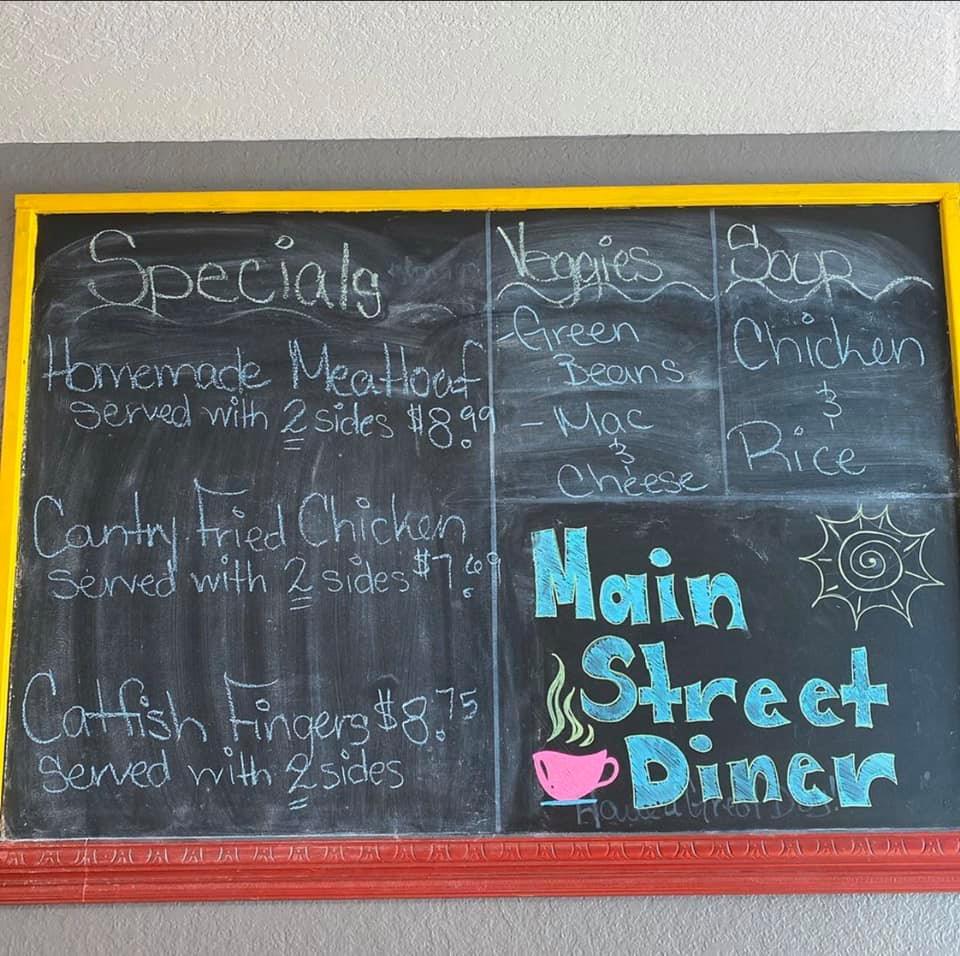 Specials
Homemade Meatloaf
served with 2 sides $8.99
Country Fried Chicken
served with 2 sides $7.69
Catfish Fingers $8.75
Served with 2 sides
Veggies
- Green
Beans
- Mac
&
Cheese
Soup
Chicken
&
Rice
Main
Street
Diner